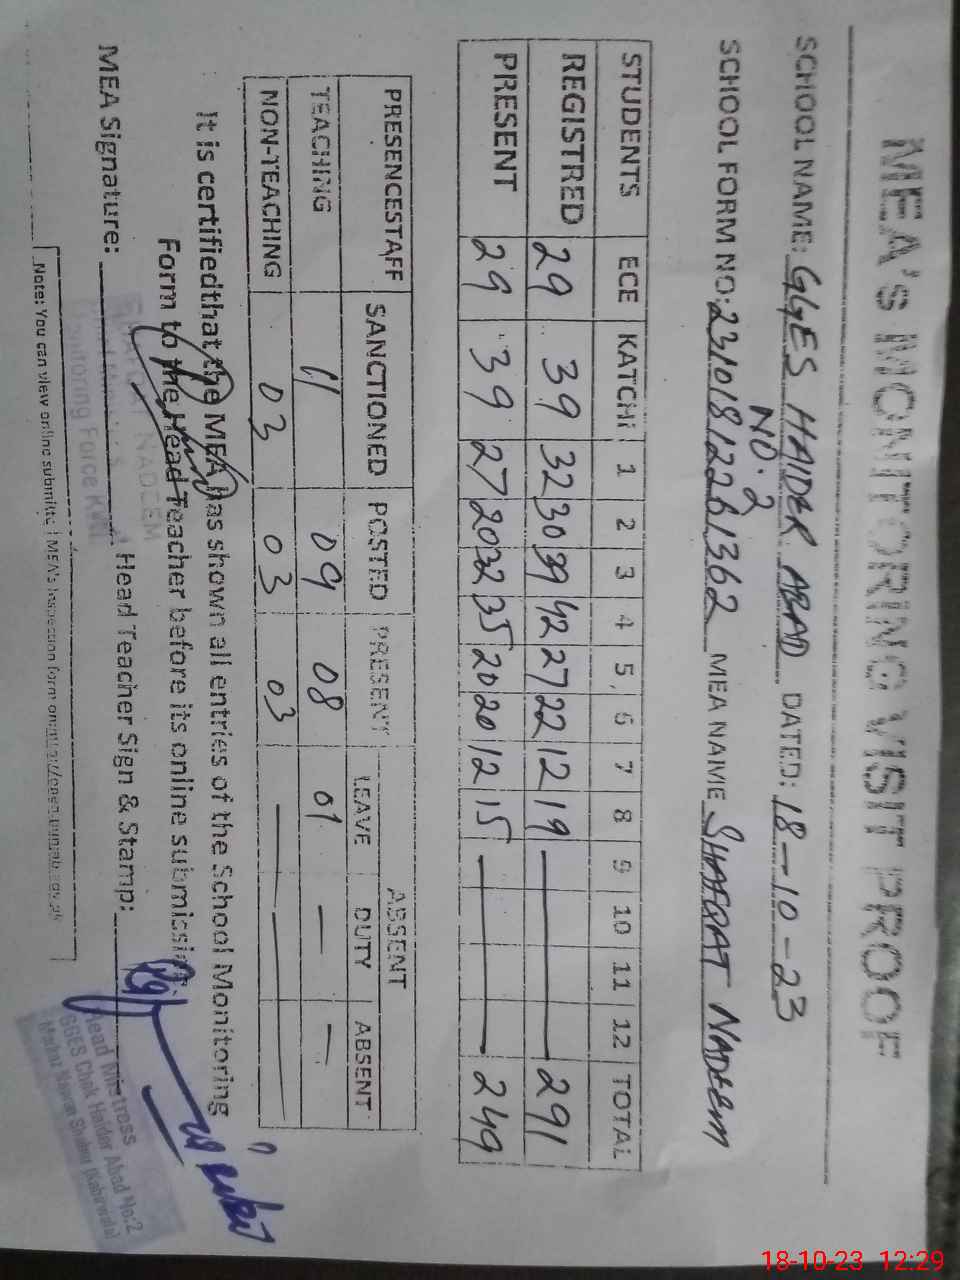 MEA's MONITORING VISIT PROOF
SCHOOL NAME: GGES HAIDER ABAD DATED: 18-10-23
NO. 2
SCHOOL FORM NO: MEA NAME SHAFQAT NADEEM
STUDENTS ECE KATCHI 1 2 3 4 5 6 7 8 9 10 11 12 TOTAL
REGISTRED 29 39 32 30 39 42 27 22 12 19 — 291
PRESENT 29 39 27 20 32 35 20 20 12 15 — 249
PRESENCESTAFF SANCTIONED POSTED PRESENT ABSENT
LEAVE DUTY ABSENT
TEACHING 11 09 08 01 — —
NON-TEACHING 03 03 03 —
It is certifiedthat the MEA has shown all entries of the School Monitoring
Form to the Head Teacher before its online submission.
MEA Signature: Head Teacher Sign & Stamp:
NADEEM
Monitoring Force
Head Mistress
GGES Chak Haider Abad No:2
(Kabirwala)
Note: You can view online submitted MEA's Inspection form on
18-10-23 12:29